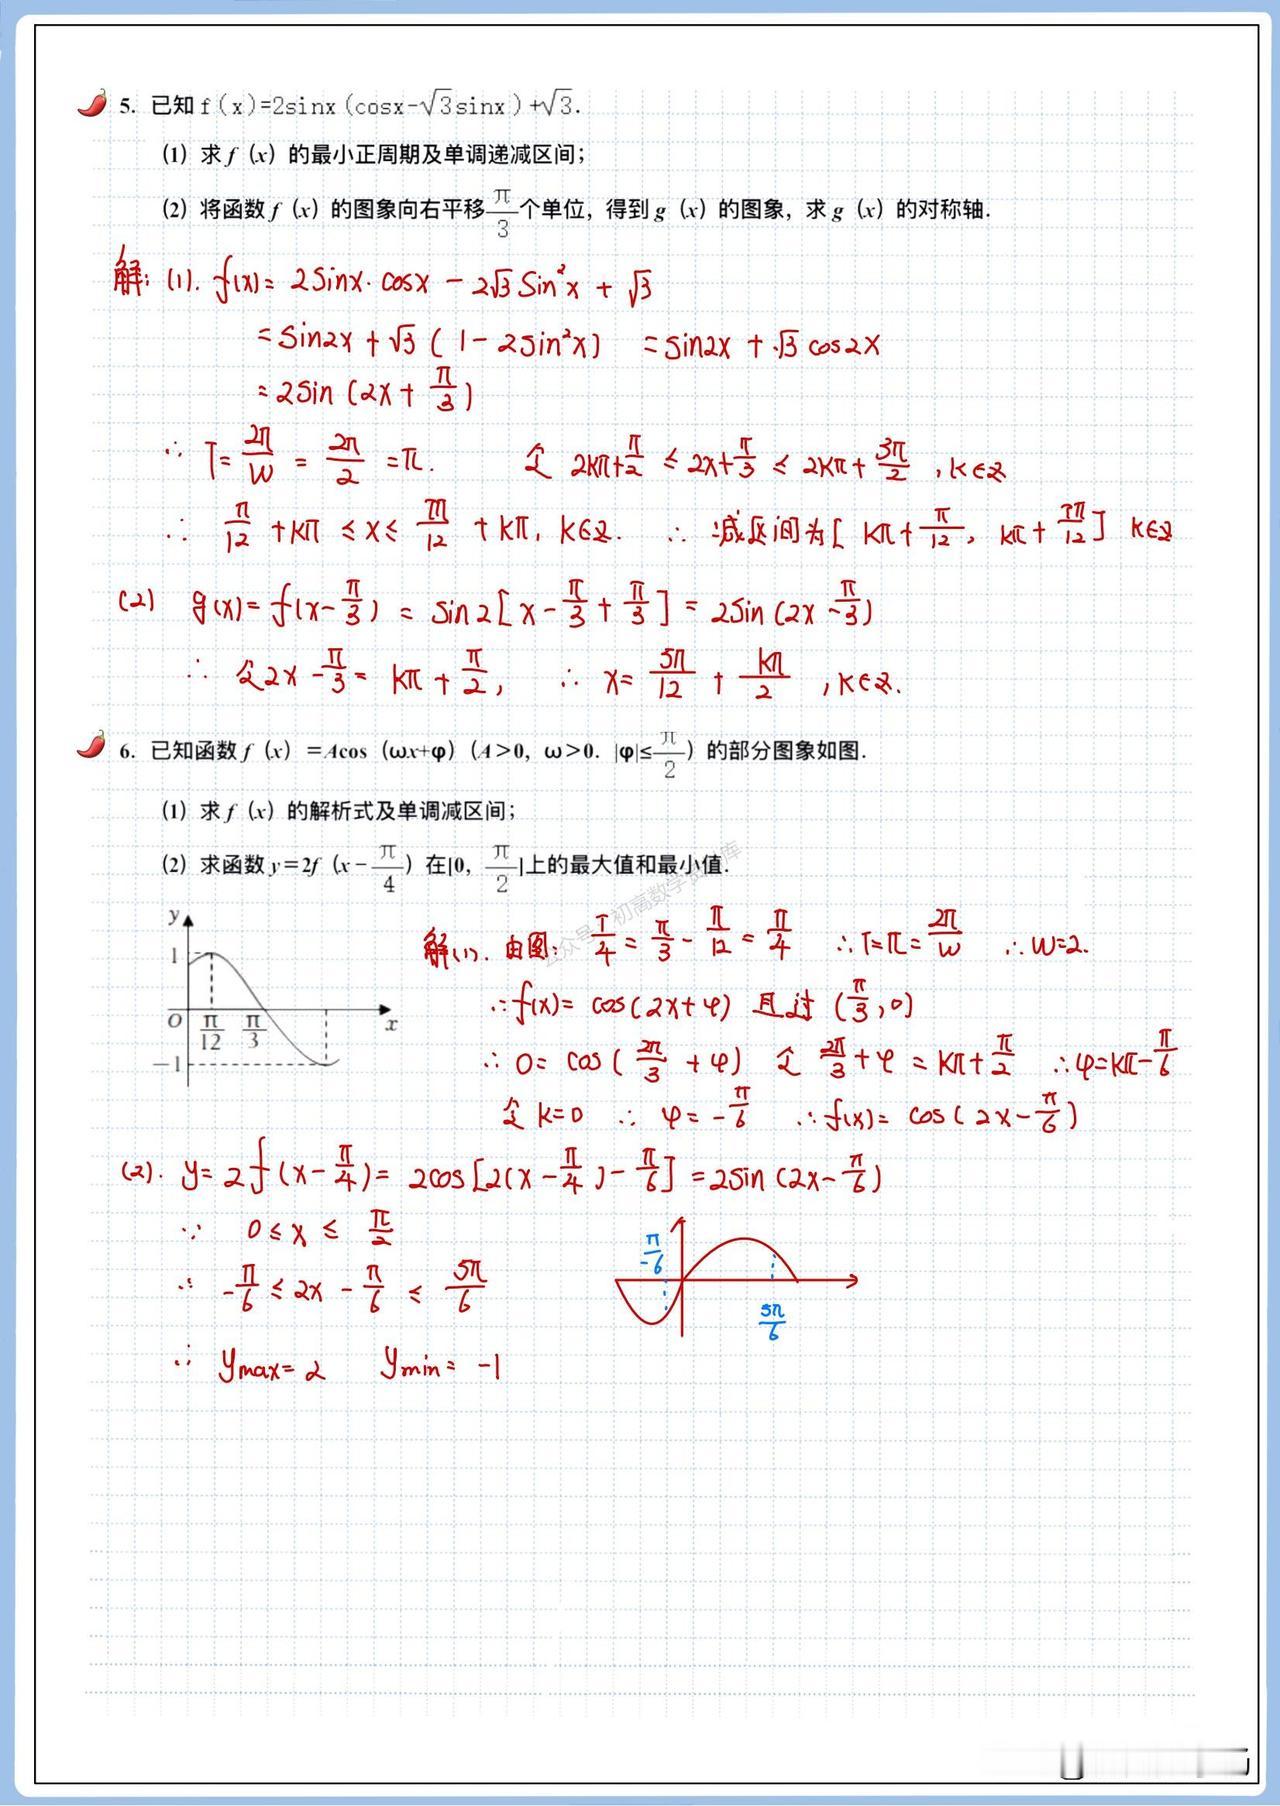 5. 已知 f(x)=2sinx(cosx-√3sinx)+√3.
(1) 求 f(x) 的最小正周期及单调递减区间;
(2) 将函数 f(x) 的图象向右平移 π/3 个单位，得到 g(x) 的图象，求 g(x) 的对称轴.
解: (1). f(x)= 2sinx·cosx - 2√3 sin²x + √3
= sin2x + √3 (1-2sin²x) = sin2x + √3 cos2x
= 2sin (2x+ π/3)
∴ T= 2π/W = 2π/2 =π. 令 2kπ+π/2 ≤ 2x+π/3 ≤ 2kπ+ 3π/2 , k∈Z
∴ π/12 +kπ ≤ x ≤ 7π/12 + kπ, k∈Z. ∴ 减区间为[ kπ+ π/12, kπ+ 7π/12 ] k∈Z
(2) g(x)= f(x-π/3) = sin2[ x- π/3 + π/3 ] = 2sin (2x -π/3)
∴ 令2x -π/3 = kπ + π/2, ∴ x= 5π/12 + kπ/2 , k∈Z.
6. 已知函数 f(x) =Acos (ωx+φ) (A>0, ω>0. |φ|≤π/2) 的部分图象如图.
(1) 求 f(x) 的解析式及单调减区间;
(2) 求函数 y=2f(x-π/4) 在[0, π/2]上的最大值和最小值.
公众号：初高数学资料库
y
1
O
π/12
π/3
x
-1
解(1). 由图: T/4 = π/3 - π/12 = π/4 ∴T=π= 2π/W ∴W=2.
∴f(x)= cos(2x+φ) 且过 (π/3, 0)
∴ 0= cos( 2π/3 + φ) 令 2π/3 +φ = kπ+ π/2 ∴φ=kπ-π/6
令 k=0 ∴ φ= -π/6 ∴f(x)= cos( 2x-π/6)
(2). y= 2f(x-π/4)= 2cos[2(x-π/4)-π/6] =2sin (2x-π/6)
∵ 0≤x≤ π/2
∴ -π/6 ≤ 2x - π/6 ≤ 5π/6
-π/6
5π/6
∴ ymax= 2 ymin= -1